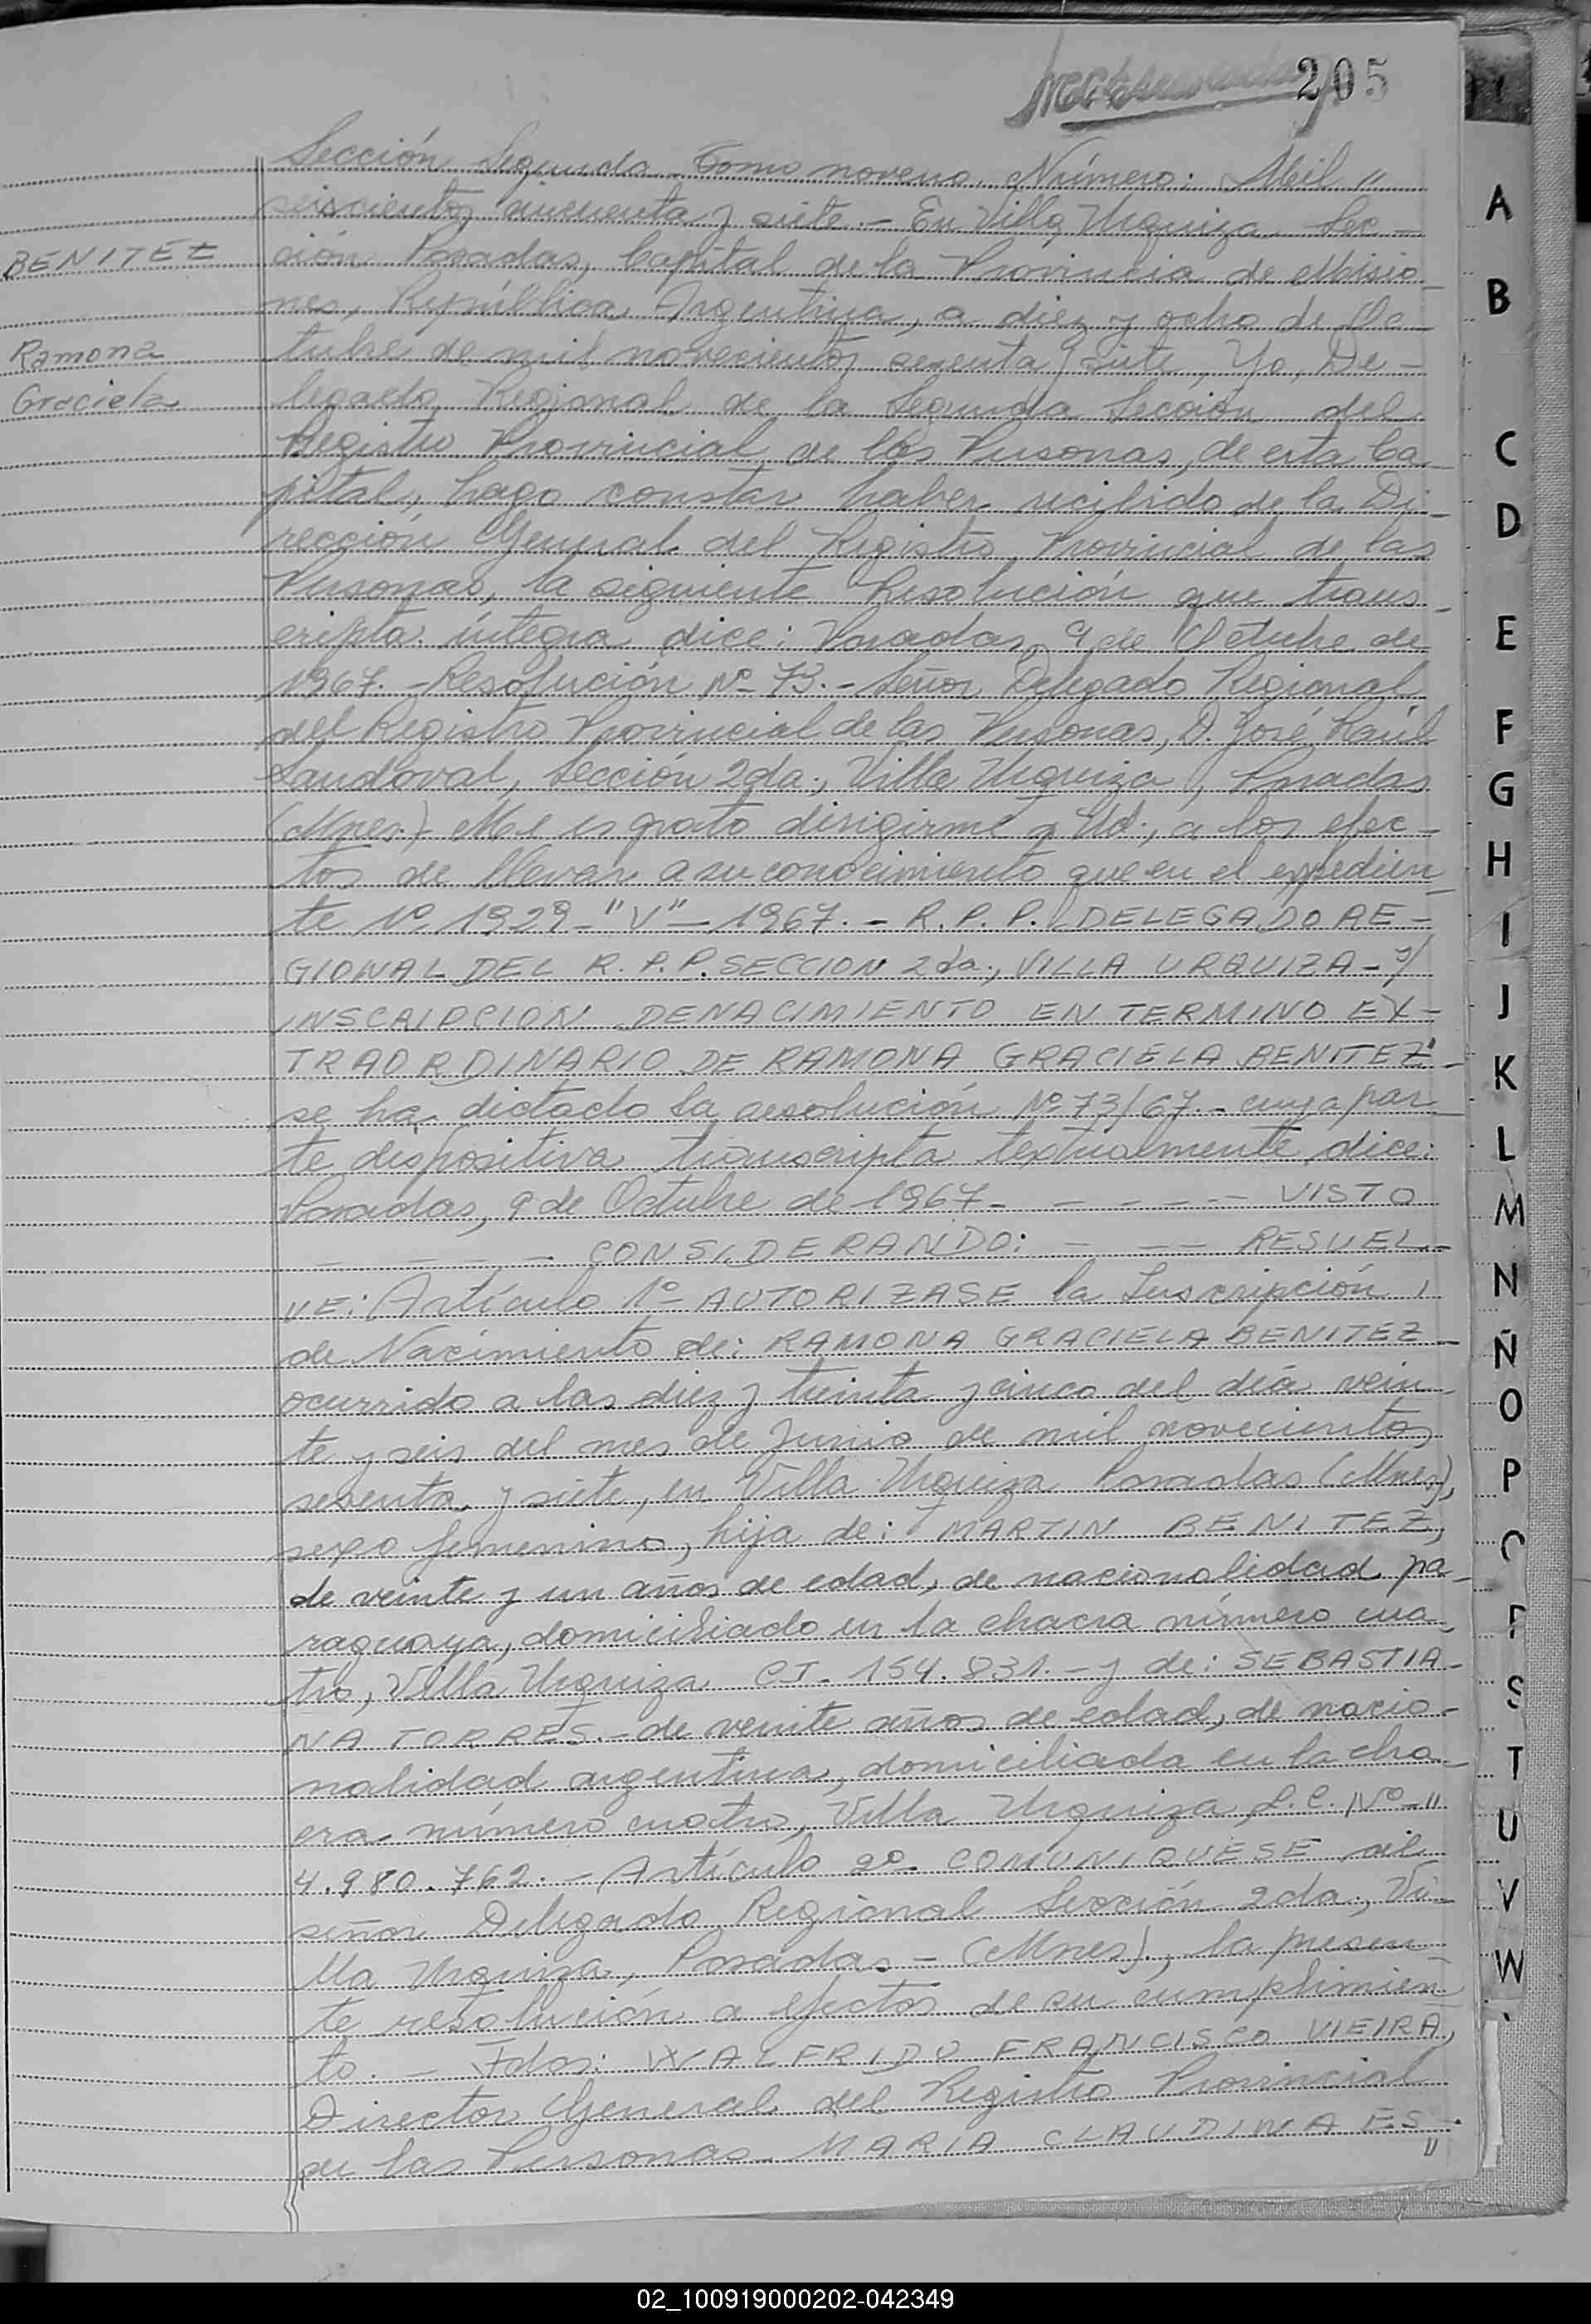 205
Sección Segunda. Tomo noveno. Número: Mil "
seiscientos cincuenta y siete.- En Villa Urquiza Sec-
BENITEZ
ción Posadas, Capital de la Provincia de Misio
nes, República Argentina, a diez y ocho de Oc-
Ramona
tubre de mil novecientos sesenta y siete, Yo, De-
Graciela
legado Regional de la Segunda Sección del
Registro Provincial de las Personas, de esta Ca-
pital, hago constar haber recibido de la Di-
rección General del Registro Provincial de las
Personas, la siguiente Resolución que trans-
cripta íntegra dice: Posadas, 9 de Octubre de
1967.-Resolución Nº 73.- Señor Delegado Regional
del Registro Provincial de las Personas, D. José Raúl
Sandoval, Sección 2da., Villa Urquiza, Posadas
(Mnes.) Me es grato dirigirme a Ud., a los efec-
tos de llevar a su conocimiento que en el expedien-
te Nº 1929-"V"-1967.- R.P.P. DELEGADO RE-
GIONAL DEL R.P.P. SECCION 2da., VILLA URQUIZA-s/
INSCRIPCION DE NACIMIENTO EN TERMINO EX-
TRAORDINARIO DE RAMONA GRACIELA BENITEZ"-
se ha dictado la resolución Nº 73/67.- cuya par
te dispositiva transcripta textualmente dice:
Posadas, 9 de Octubre de 1967- - - - - - VISTO
- - - - CONSIDERANDO: - - - RESUEL-
VE: Artículo 1º AUTORIZASE la Inscripción
de Nacimiento de: RAMONA GRACIELA BENITEZ-
ocurrido a las diez y treinta y cinco del día vein-
te y seis del mes de Junio de mil novecientos
sesenta y siete, en Villa Urquiza Posadas (Mnes),
sexo femenino, hija de: MARTIN BENITEZ,
de veinte y un años de edad, de nacionalidad pa-
raguaya, domiciliado en la chacra número cua-
tro, Villa Urquiza CI. 154.831.- y de: SEBASTIA-
NA TORRES.- de veinte años de edad, de nacio-
nalidad argentina, domiciliada en la cha-
cra número cuatro, Villa Urquiza, L.C. Nº-"
4.980.762.- Artículo 2º COMUNIQUESE al
señor Delegado Regional Sección 2da., Vi-
lla Urquiza, Posadas - (Mnes), la presen-
te resolución a efectos de su cumplimien-
to. - Fdos: WALFRIDO FRANCISCO VIEIRA,
Director General del Registro Provincial
de las Personas. MARIA CLAUDINA ES-
"
A
B
C
D
E
F
G
H
I
J
K
L
M
N
Ñ
O
P
S
T
U
V
W
02_100919000202-042349